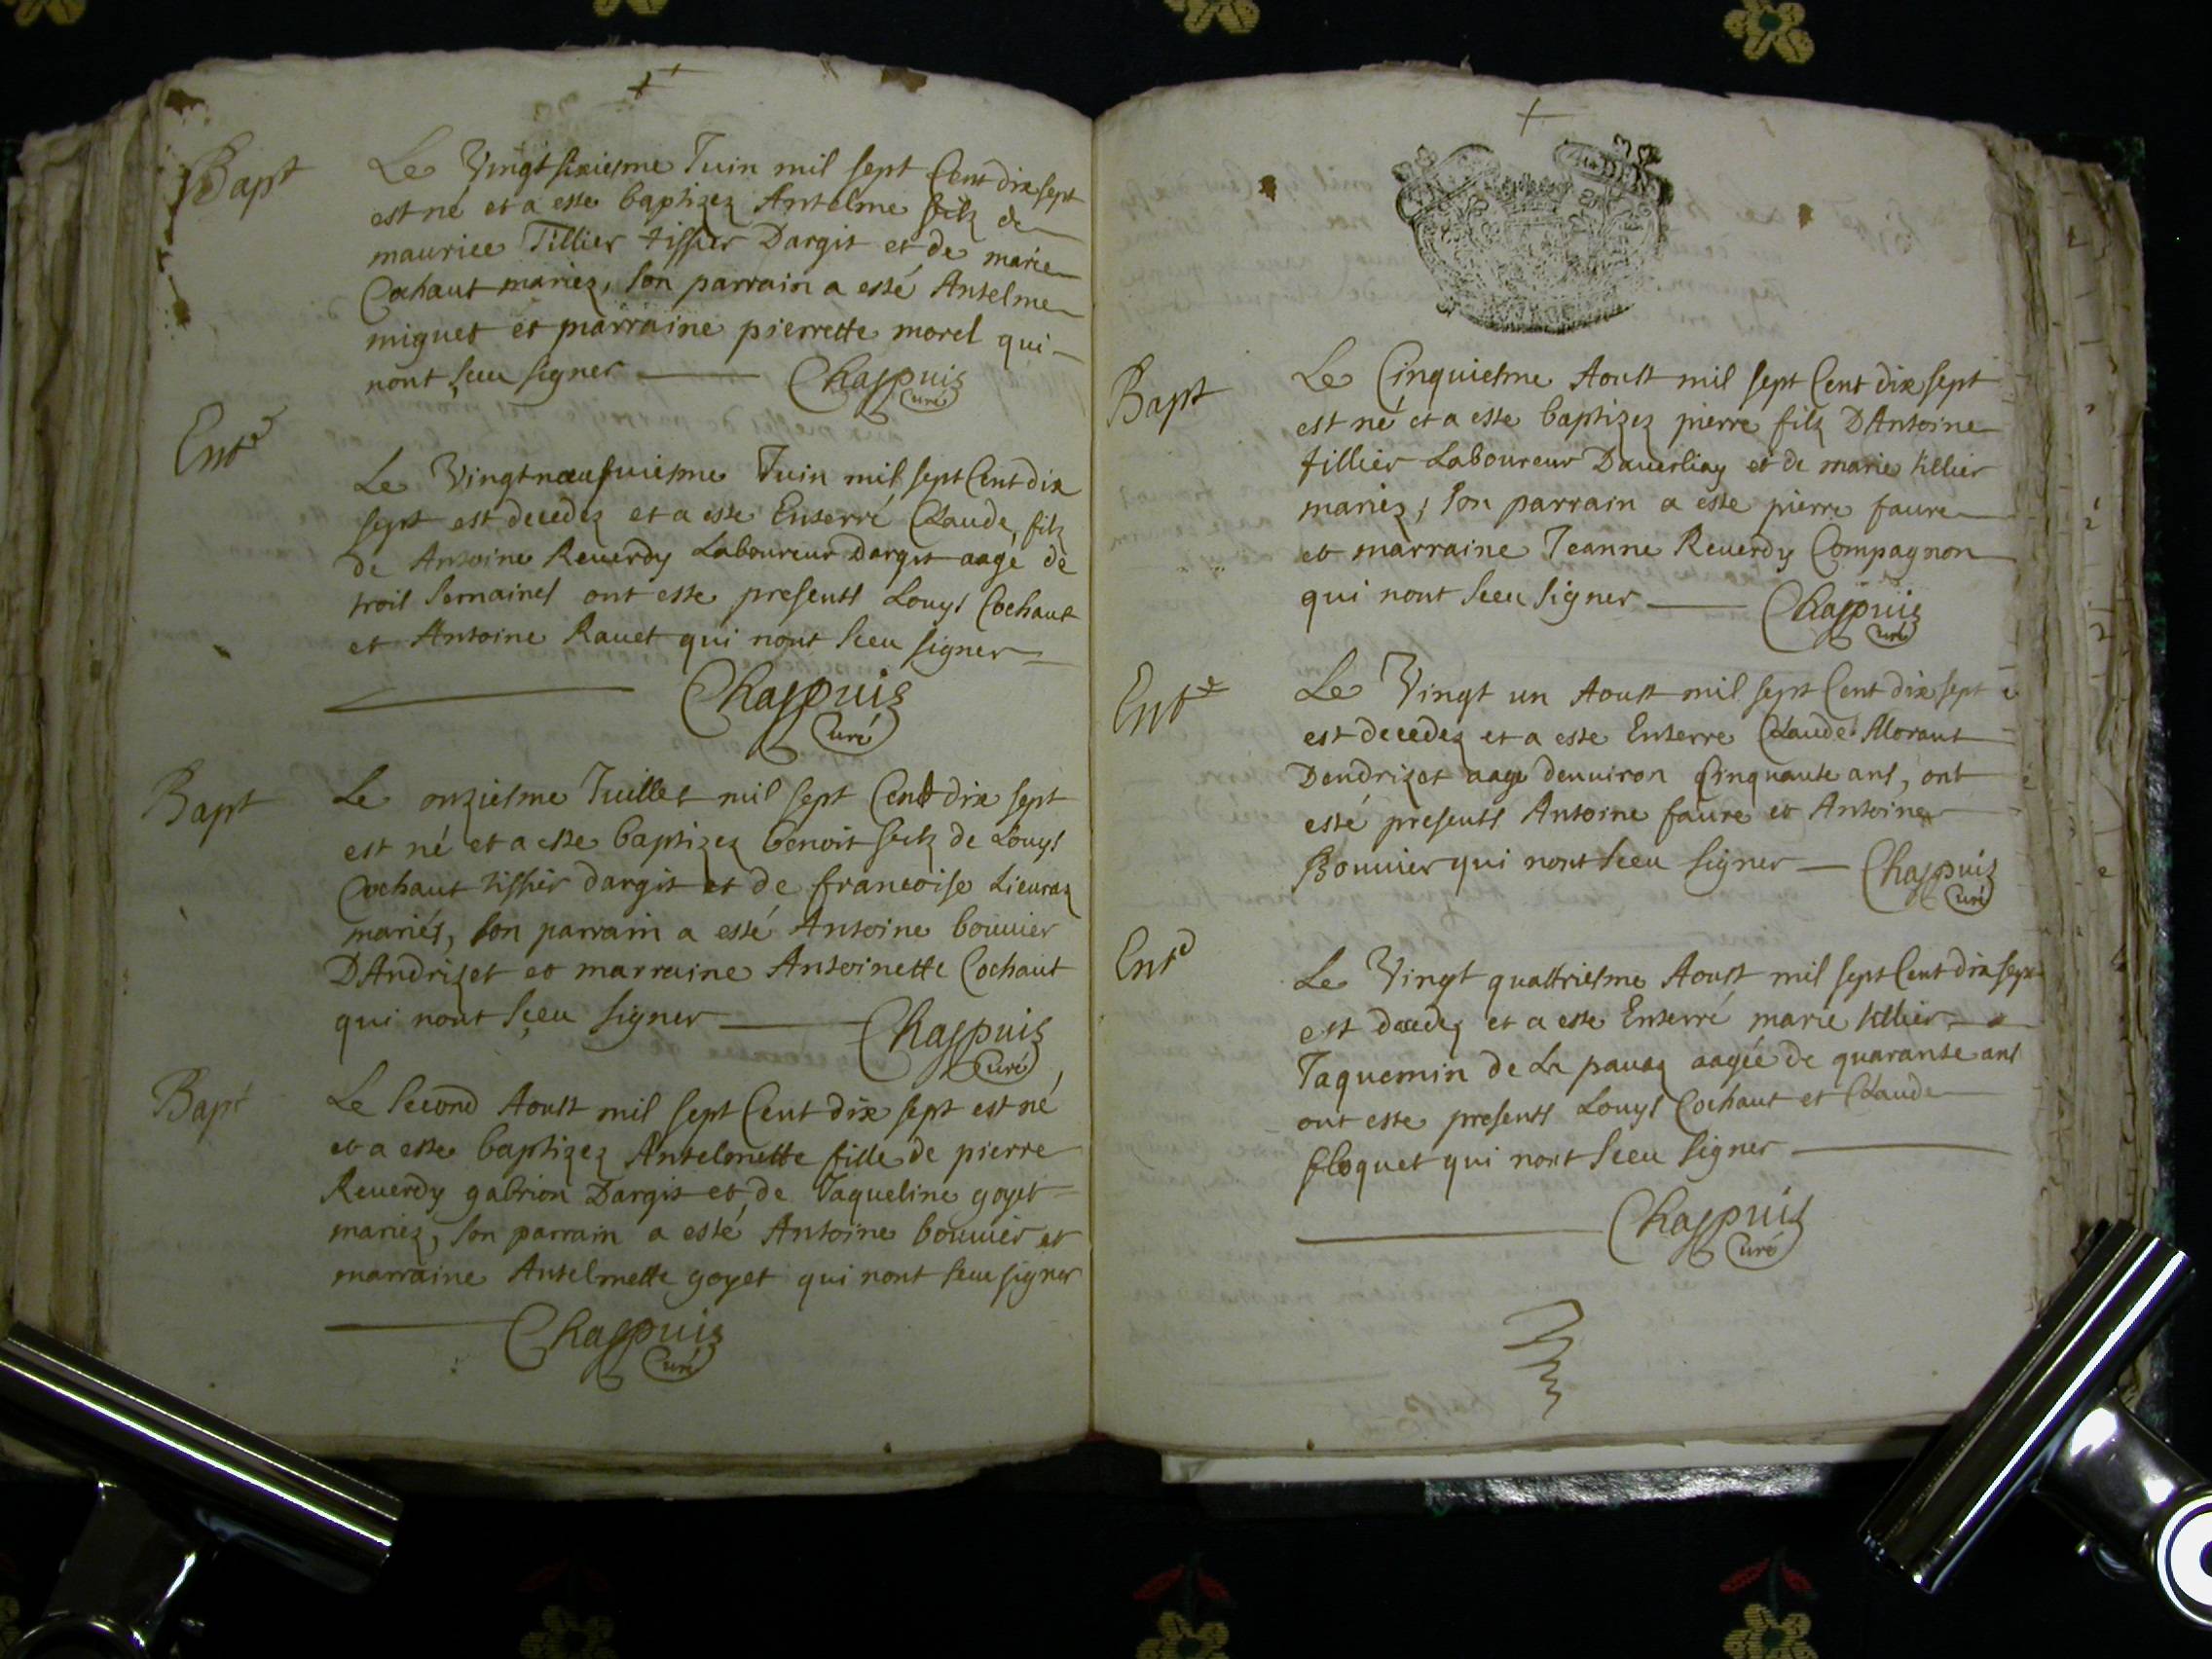 Bapt
Le Vingt sixiesme Juin mil sept Cent dix sept
est né et a esté baptizez Antelme filz de
maurice Tillier tissier Dargis et de marie
Cochaut mariez, son parrain a esté Antelme
miguet et marraine pierrette morel qui
nont sceu signer Chaspuis
Curé
Entt
Le Vingtneufuiesme Juin mil sept Cent dix
sept est decedez et a esté Enterré Claude, filz
de Antoine Reuerdy Laboureur Dargis aagé de
trois semaines ont esté presents Louys Cochaut
et Antoine Rauet qui nont sceu signer
Chaspuis
Curé
Bapt
Le onziesme Juillet mil sept Cent dix sept
est né et a esté baptizez benoit filz de Louys
Cochaut tissier dargis et de francoise Lieuraz
mariés, son parrain a esté Antoine bouuier
DAndrizet et marraine Antoinette Cochaut
qui nont sceu signer Chaspuis
Curé
Bapt
Le second Aoust mil sept Cent dix sept est né
et a esté baptizez Antelmette fille de pierre
Reuerdy gabrion Dargis et de Jaqueline goyet
mariez, son parrain a esté Antoine bouuier et
marraine Antelmette goyet qui nont sceu signer
Chaspuis
Curé
Bapt
Le Cinquiesme Aoust mil sept Cent dix sept
est né et a esté baptizez pierre filz DAntoine
tillier Laboureur Dauerliay et de marie tillier
mariez, son parrain a esté pierre faure
et marraine Jeanne Reuerdy Compagnon
qui nont sceu signer Chaspuis
Curé
Entt
Le Vingt un Aoust mil sept Cent dix sept
est decedez et a esté Enterré Claude Moraut
Dendrizet aagé denuiron Cinquante ans, ont
esté presents Antoine faure et Antoine
Bouuier qui nont sceu signer Chaspuis
Curé
Entt
Le Vingt quattriesme Aoust mil sept Cent dix sept
est decedez et a esté Enterré marie tillier
Jaquemin de La pauaz aagée de quarante ans
ont esté presents Louys Cochaut et Claude
floquet qui nont sceu signer
Chaspuis
Curé